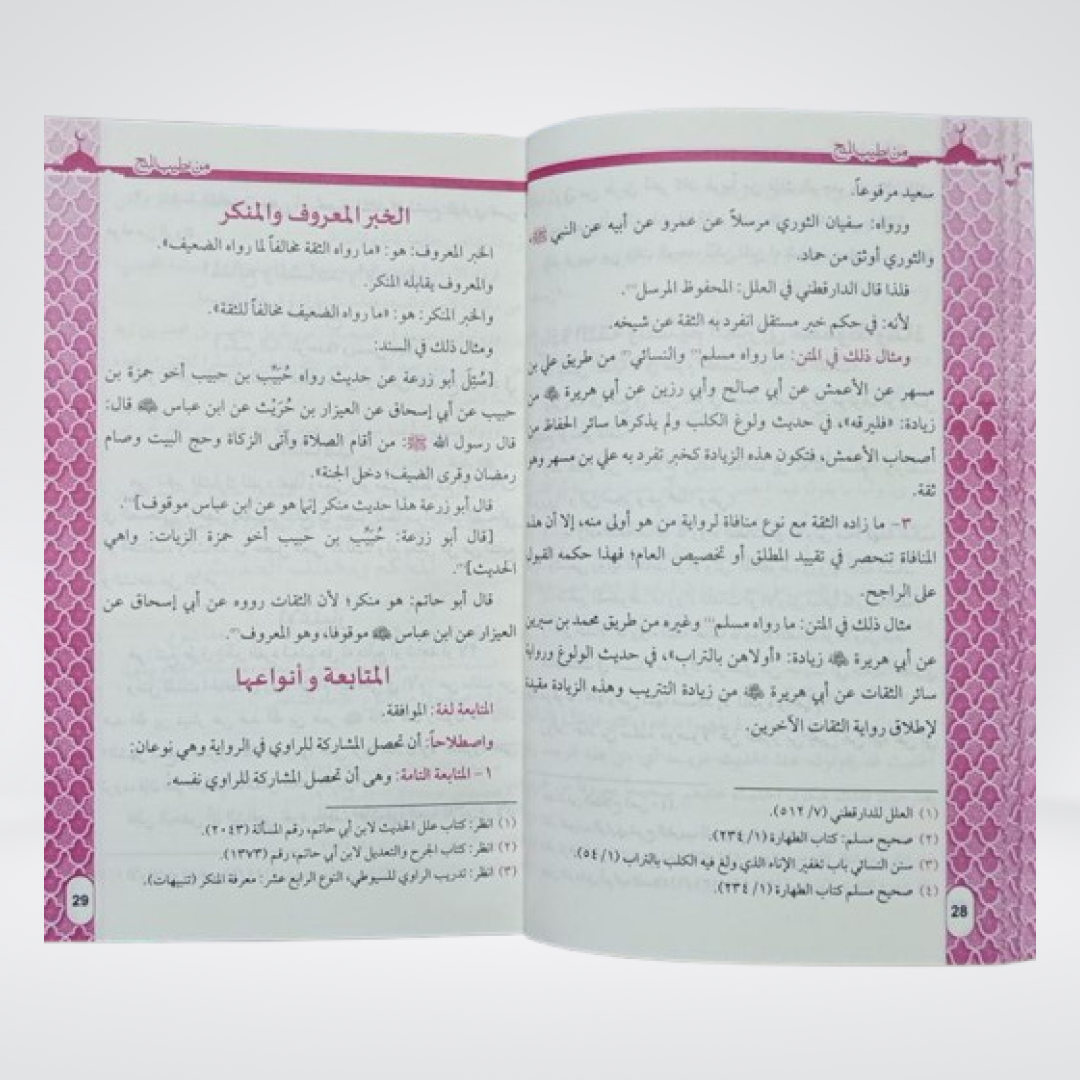 من أطيب المنح
سعيد مرفوعاً.
ورواه: سفيان الثوري مرسلاً عن عمرو عن أبيه عن النبي ﷺ،
والثوري أوثق من حماد.
فلذا قال الدارقطني في العلل: المحفوظ المرسل(١).
لأنه: في حكم خبر مستقل انفرد به الثقة عن شيخه.
ومثال ذلك في المتن: ما رواه مسلم(٢) والنسائي(٣) من طريق علي بن
مسهر عن الأعمش عن أبي صالح وأبي رزين عن أبي هريرة ﷺ من
زيادة: «فليرقه»، في حديث ولوغ الكلب ولم يذكرها سائر الحفاظ من
أصحاب الأعمش، فتكون هذه الزيادة كخبر تفرد به علي بن مسهر وهو
ثقة.
٣- ما زاده الثقة مع نوع منافاة لرواية من هو أولى منه، إلا أن هذه
المنافاة تنحصر في تقييد المطلق أو تخصيص العام؛ فهذا حكمه القبول
على الراجح.
مثال ذلك في المتن: ما رواه مسلم(٤) وغيره من طريق محمد بن سيرين
عن أبي هريرة زيادة: «أولاهن بالتراب»، في حديث الولوغ ورواية
سائر الثقات عن أبي هريرة من زيادة التتريب وهذه الزيادة مقيدة
لإطلاق رواية الثقات الآخرين.
(١) العلل للدارقطني (٧/ ٥١٢).
(٢) صحيح مسلم: كتاب الطهارة (١/ ٢٣٤).
(٣) سنن النسائي باب تغفير الإناء الذي ولغ فيه الكلب بالتراب (١/ ٥٤).
(٤) صحيح مسلم كتاب الطهارة (١/ ٢٣٤).
28
من أطيب المنح
الخبر المعروف والمنكر
الخبر المعروف: هو: «ما رواه الثقة مخالفاً لما رواه الضعيف».
والمعروف يقابله المنكر.
والخبر المنكر: هو: «ما رواه الضعيف مخالفاً للثقة».
ومثال ذلك في السند:
[سُئِلَ أبو زرعة عن حديث رواه حُبَيِّب بن حبيب أخو حمزة بن
حبيب عن أبي إسحاق عن العيزار بن حُرَيْث عن ابن عباس قال:
قال رسول الله ﷺ: من أقام الصلاة وآتى الزكاة وحج البيت وصام
رمضان وقرى الضيف؛ دخل الجنة».
قال أبو زرعة هذا حديث منكر إنما هو عن ابن عباس موقوف](١).
[قال أبو زرعة: حُبَيِّب بن حبيب أخو حمزة الزيات: واهي
الحديث](٢).
قال أبو حاتم: هو منكر؛ لأن الثقات رووه عن أبي إسحاق عن
العيزار عن ابن عباس موقوفا، وهو المعروف(٣).
المتابعة وأنواعها
المتابعة لغة: الموافقة.
واصطلاحاً: أن تحصل المشاركة للراوي في الرواية وهي نوعان:
١- المتابعة التامة: وهي أن تحصل المشاركة للراوي نفسه.
(١) انظر: كتاب علل الحديث لابن أبي حاتم، رقم المسألة (٢٠٤٣).
(٢) انظر: كتاب الجرح والتعديل لابن أبي حاتم، رقم (١٣٧٣).
(٣) انظر: تدريب الراوي للسيوطي، النوع الرابع عشر: معرفة المنكر (تنبيهات).
29